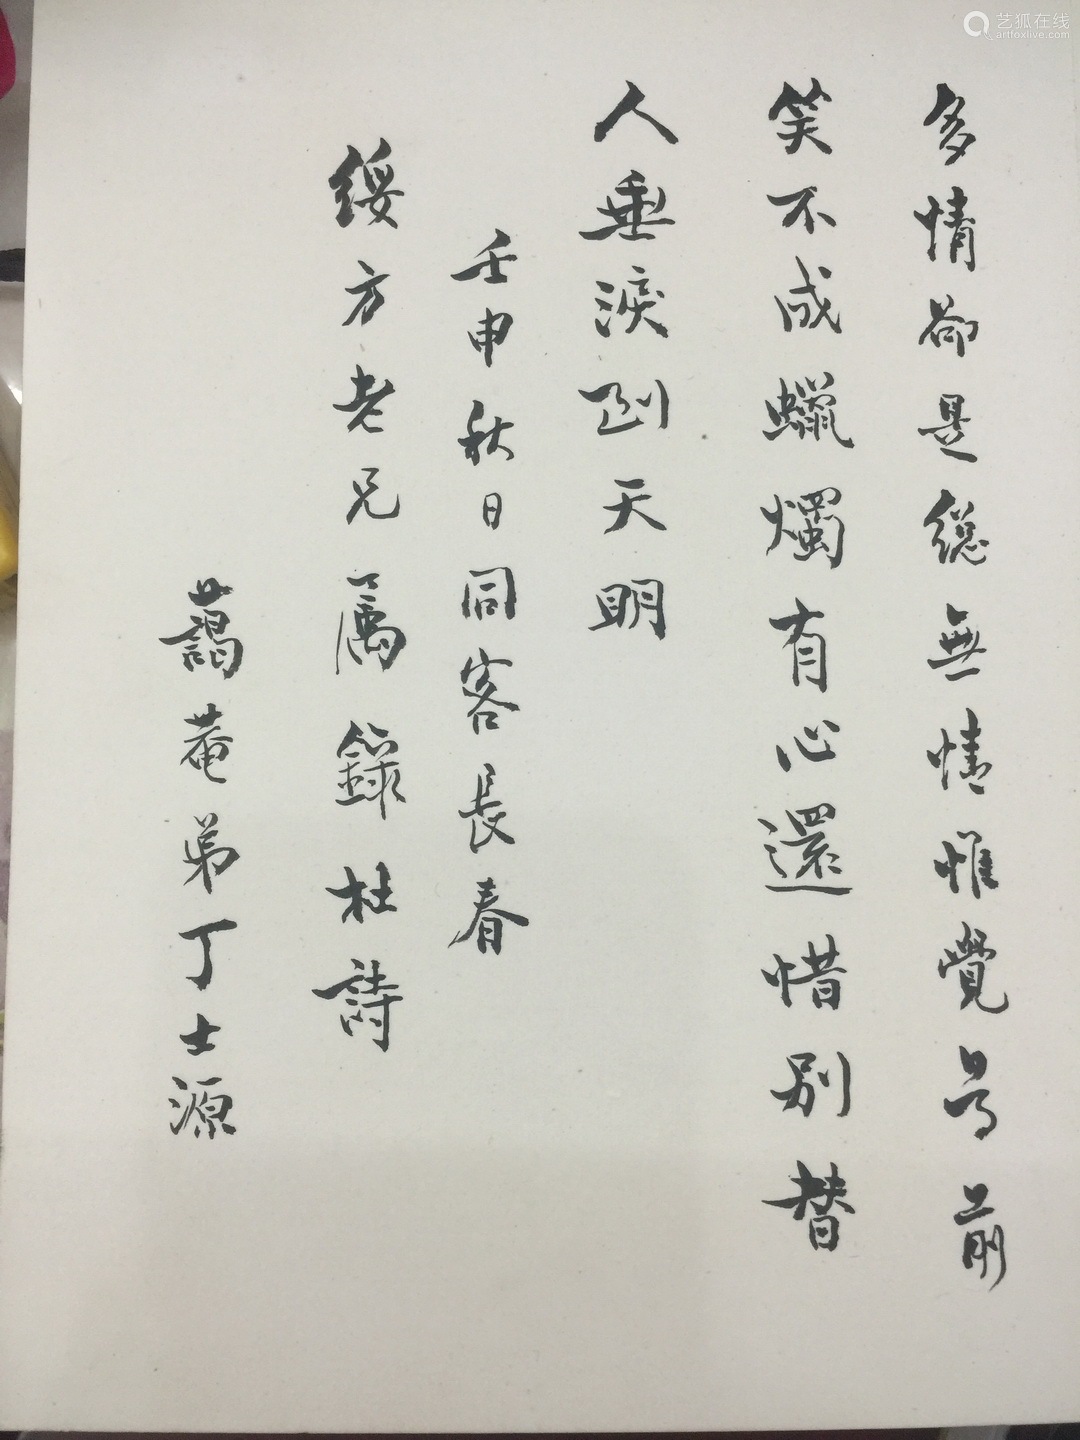 多情卻是總無情惟覺尊前
笑不成蠟燭有心還惜別替
人垂淚到天明
壬申秋日同客長春
綏方老兄屬錄杜詩
藹菴弟丁士源
艺狐在线
artfoxlive.com